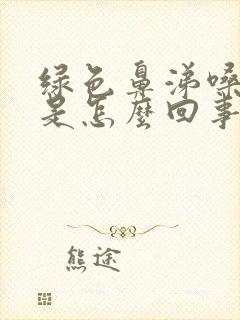 绿色鼻涕嗓
是怎麼回事
熊途